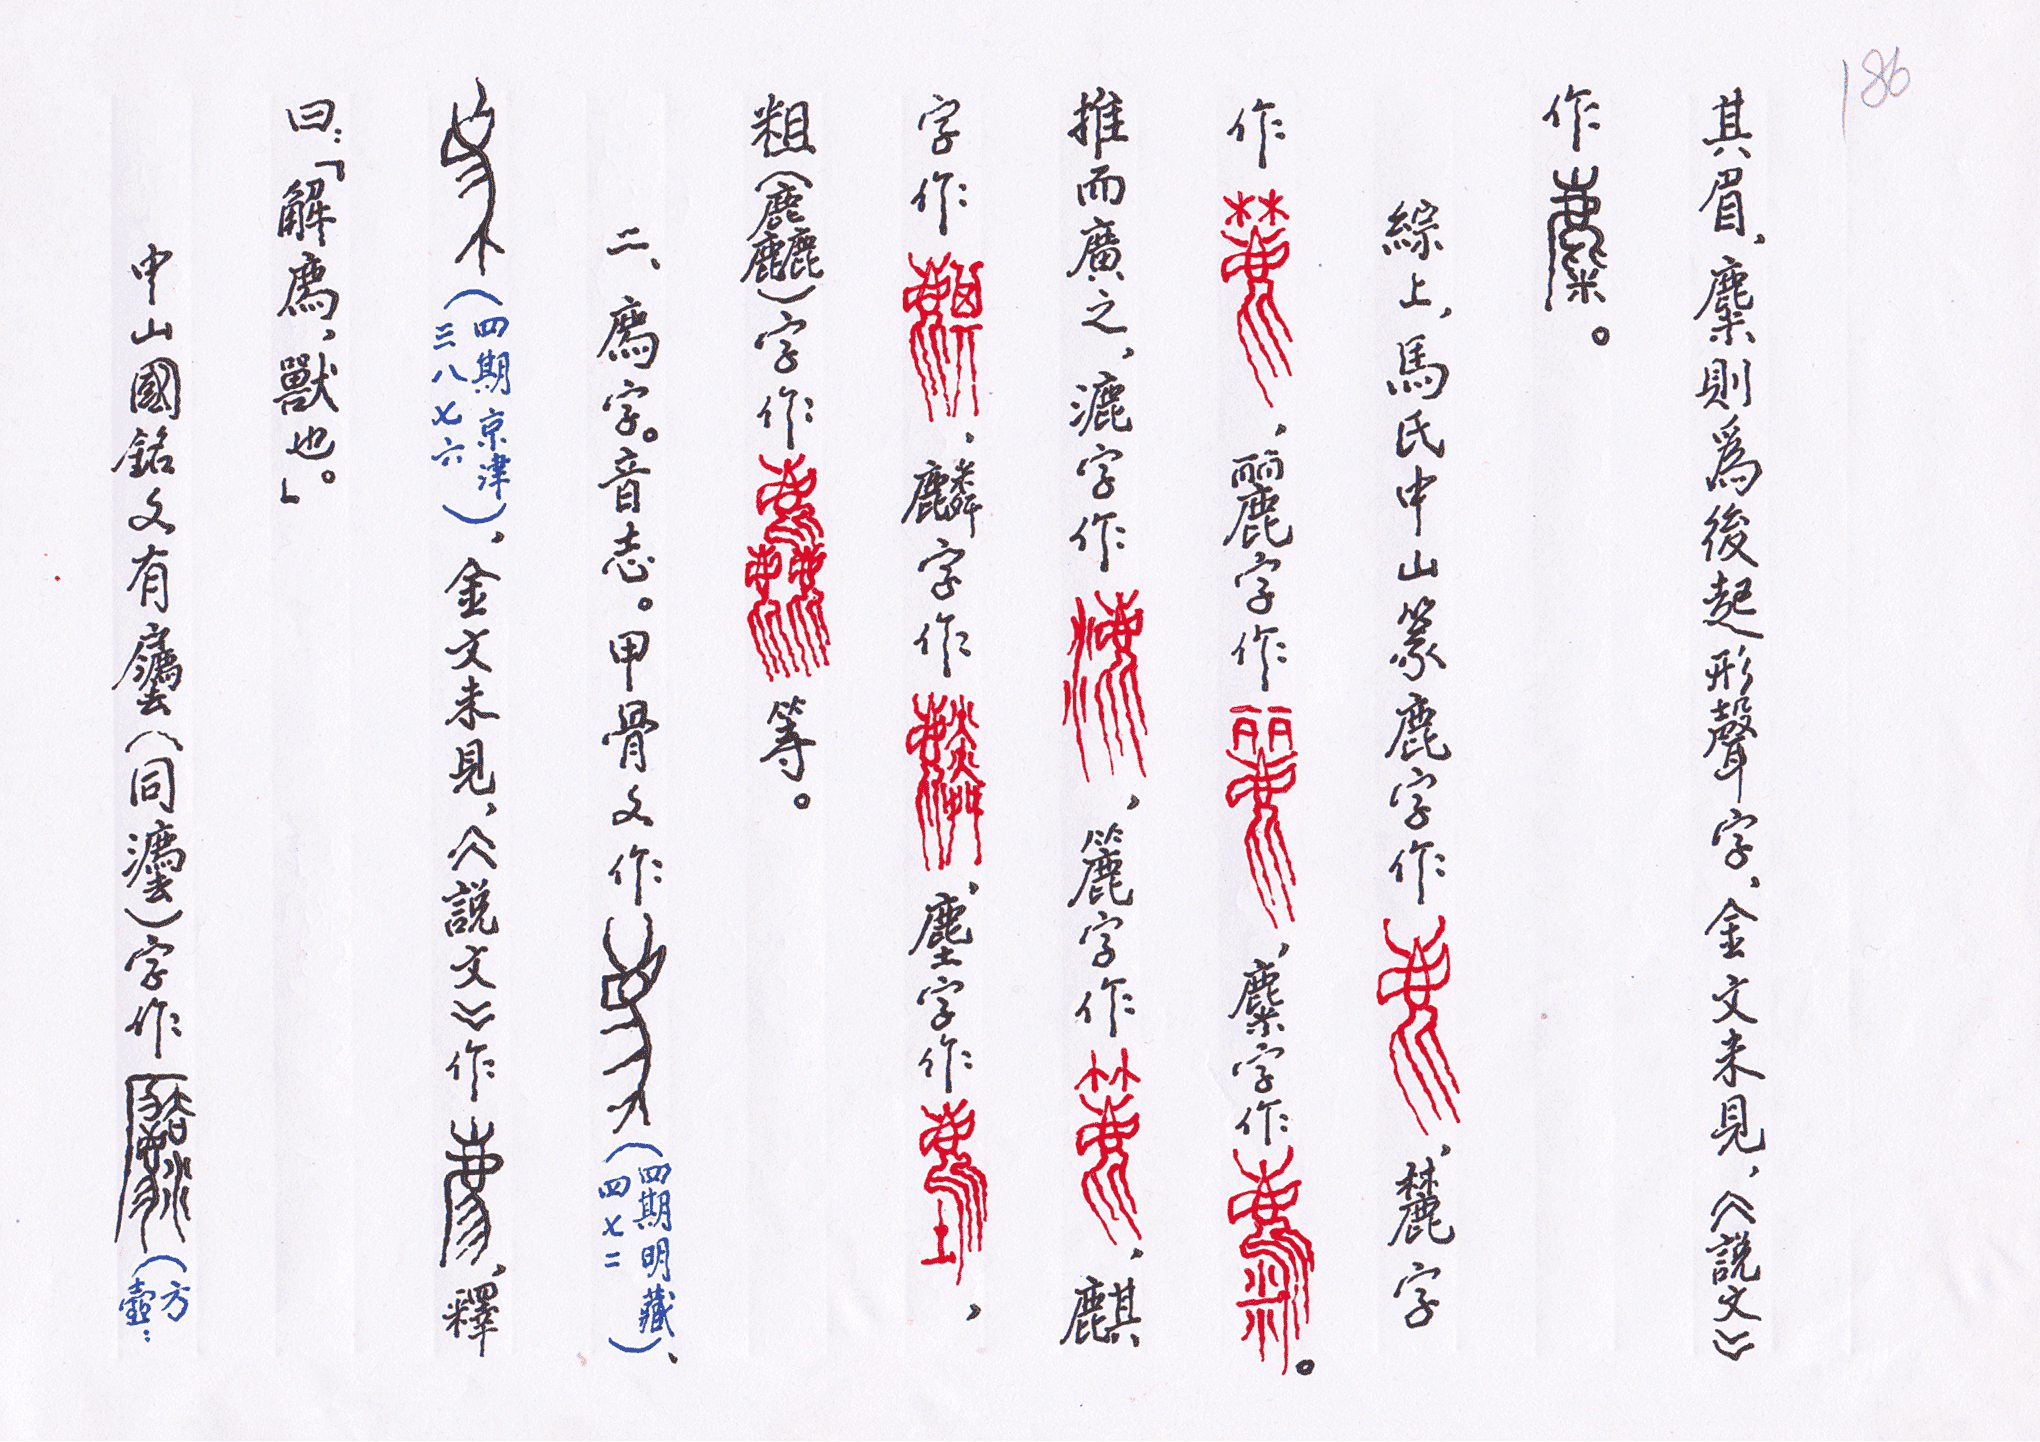 186
其眉、麋則爲後起形聲字、金文未見，《說文》
作。
綜上，馬氏中山篆鹿字作，麓字
作，麗字作，麋字作。
推而廣之，漉字作，簏字作，麒
字作，麟字作，塵字作，
粗（麤）字作等。
二、廌字。音志。甲骨文作（四期明藏四七二）、
（四期京津三八七六），金文未見，《說文》作，釋
曰：「解廌，獸也。」
中山國銘文有（同灋）字作（方壺：